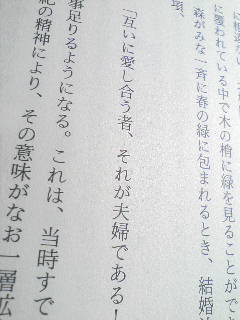 に覆われている中で木の梢に緑を見ることがで
森がみな一斉に春の緑に包まれるとき、結婚
頃、
「互いに愛し合う者、それが夫婦である！
事足りるようになる。これは、当時すで
紀の精神により、その意味がなお一層広